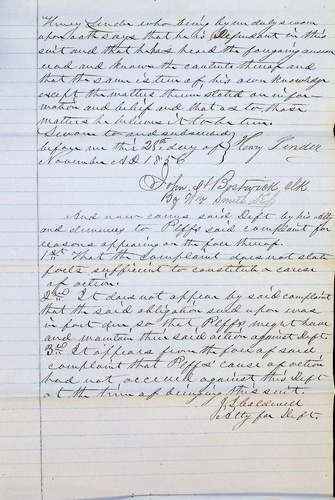 Henry Pender who being by me duly sworn
upon oath says that he is Defendant in this
suit and that he has heard the foregoing answer
read and knows the contents thereof and
that the same is true of his own knowledge
except the matters therein stated on infor-
mation and belief and that as to those
matters he believes it to be true.
Sworn to and subscribed
before me this 28th day of } Hery Pender
November AD 1856
John H Bostwick clk
By Wm Smith Dpty
And now comes said Deft by his atty
and demurrs to Plffs said complaint for
reasons appearing on the face thereof.
1st That the complaint does not state
facts sufficient to constitute a cause
of action.
2nd It does not appear by said complaint
that the said obligation sued upon was
in fact due so that Plffs might have
and maintain their said action against Deft
3rd It appears from the face of said
complaint that Plffs' cause of action
had not accrued against this Deft
at the time of bringing this suit.
Caldwell
Atty for Deft.